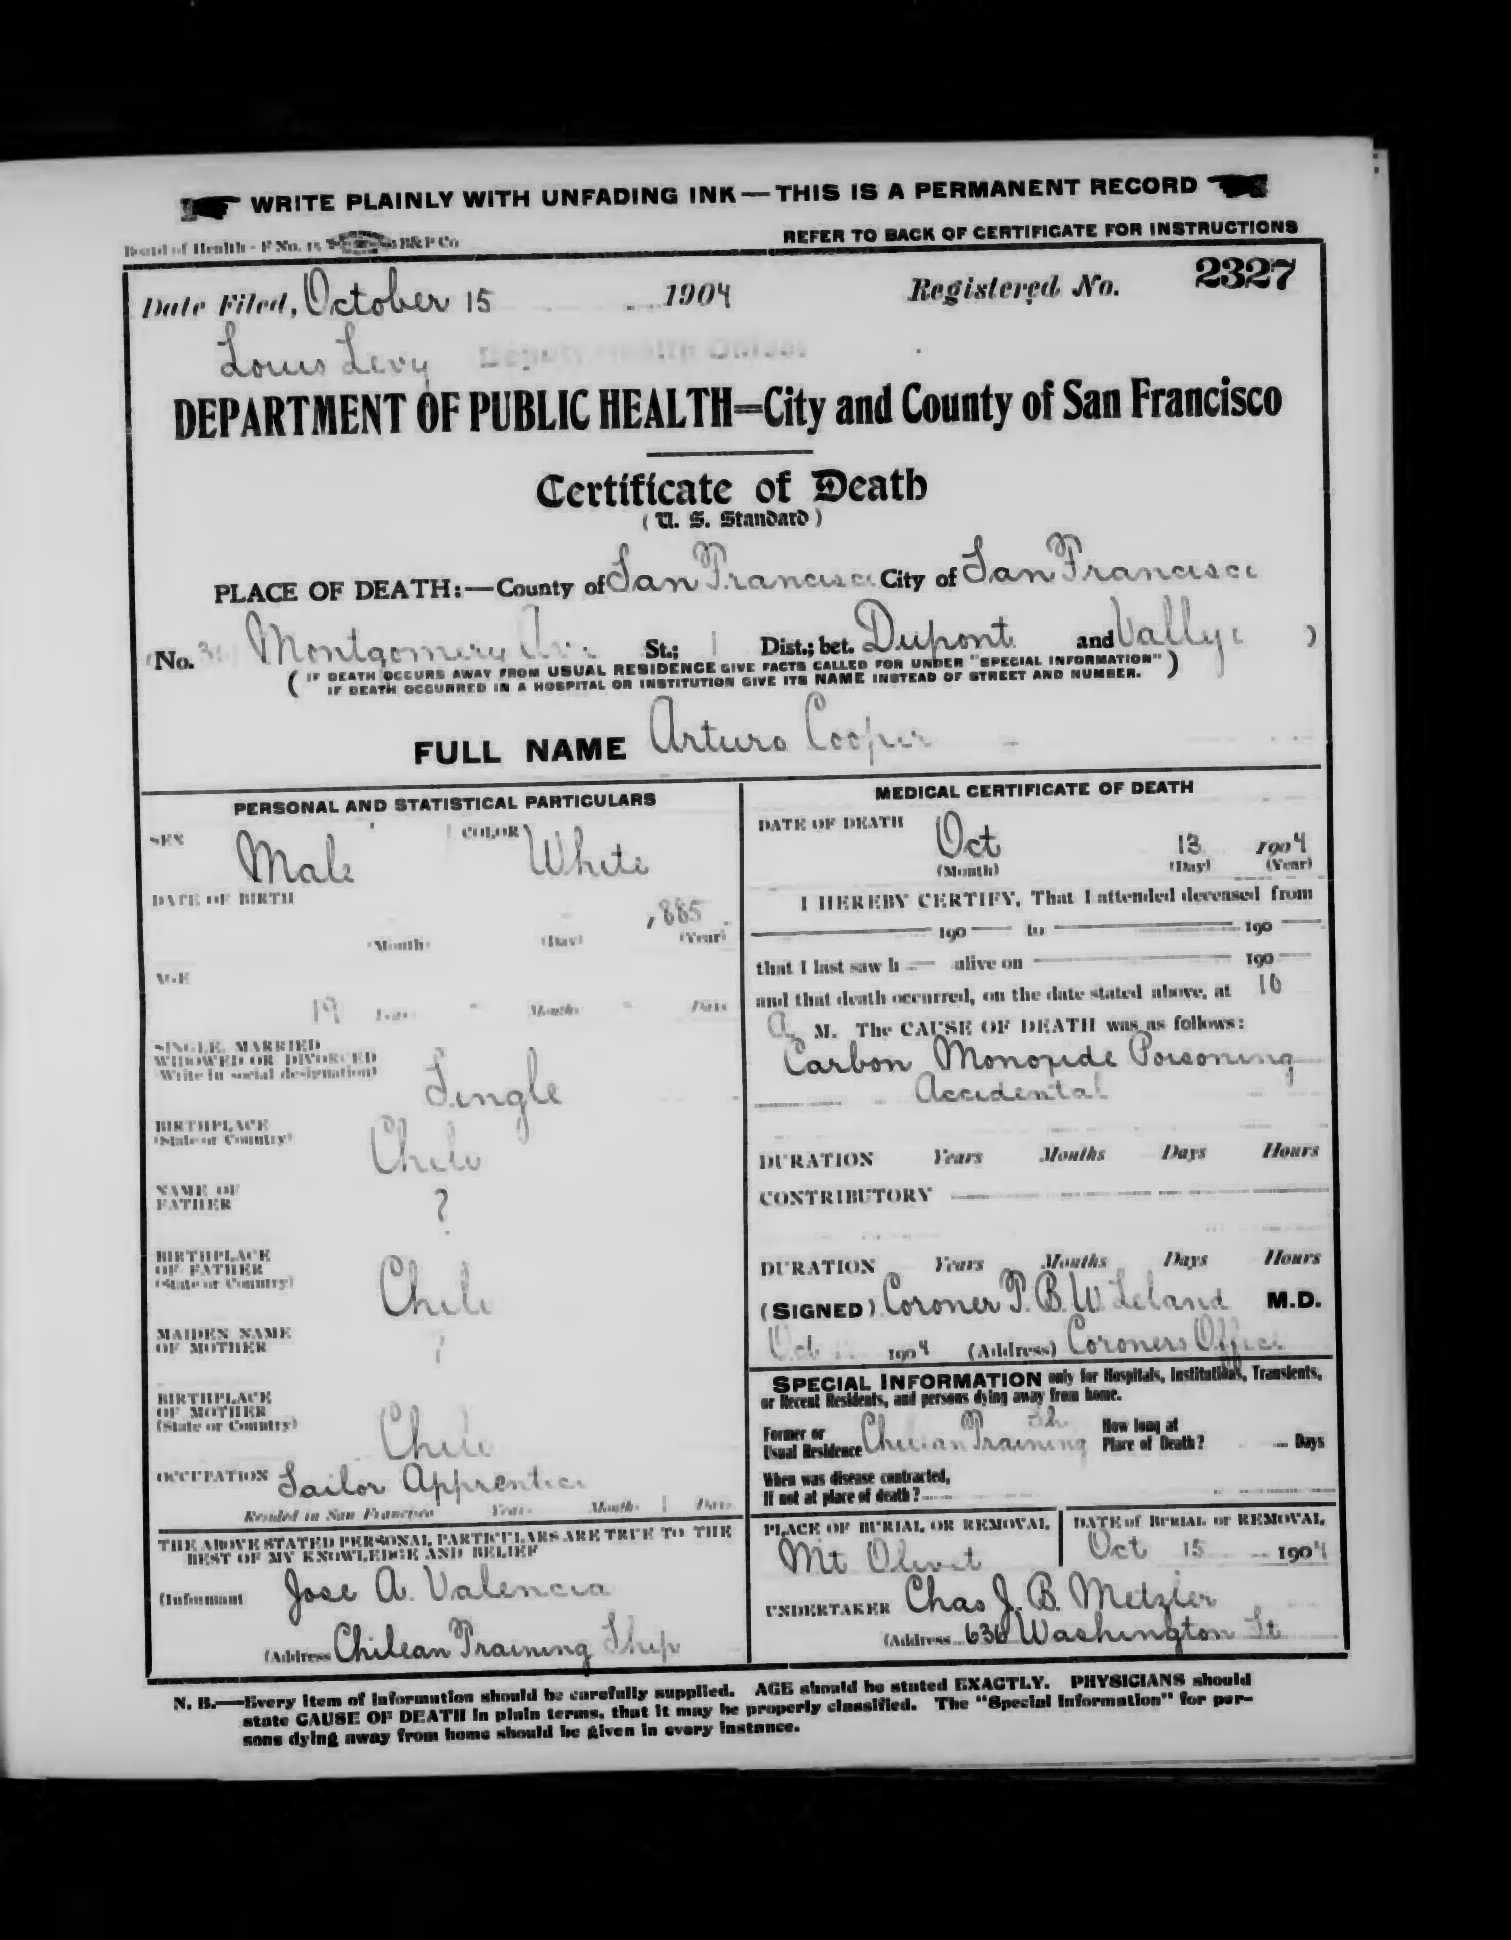 WRITE PLAINLY WITH UNFADING INK—THIS IS A PERMANENT RECORD
Board of Health - F No. 15 B&P Co
REFER TO BACK OF CERTIFICATE FOR INSTRUCTIONS
Date Filed, October 15 1904 Registered No. 2327
Louis Levy Deputy Health Officer
DEPARTMENT OF PUBLIC HEALTH=City and County of San Francisco
Certificate of Death
(U. S. Standard)
PLACE OF DEATH:—County of San Francisco City of San Francisco
(No. Montgomery Ave St.; 1 Dist.; bet. Dupont and Vallejo )
( IF DEATH OCCURS AWAY FROM USUAL RESIDENCE GIVE FACTS CALLED FOR UNDER "SPECIAL INFORMATION" )
IF DEATH OCCURRED IN A HOSPITAL OR INSTITUTION GIVE ITS NAME INSTEAD OF STREET AND NUMBER.
FULL NAME Arturo Cooper
PERSONAL AND STATISTICAL PARTICULARS
SEX Male COLOR White
DATE OF BIRTH
1885
(Month) (Day) (Year)
AGE
19 Years - Months - Days
SINGLE, MARRIED
WIDOWED OR DIVORCED
(Write in social designation) Single
BIRTHPLACE
(State or Country) Chile
NAME OF
FATHER ?
BIRTHPLACE
OF FATHER
(State or Country) Chile
MAIDEN NAME
OF MOTHER ?
BIRTHPLACE
OF MOTHER
(State or Country) Chile
OCCUPATION Sailor Apprentice
Resided in San Francisco Years Months 1 Days
THE ABOVE STATED PERSONAL PARTICULARS ARE TRUE TO THE
BEST OF MY KNOWLEDGE AND BELIEF
(Informant Jose A. Valencia
(Address Chilean Training Ship
MEDICAL CERTIFICATE OF DEATH
DATE OF DEATH Oct 13 1904
(Month) (Day) (Year)
I HEREBY CERTIFY, That I attended deceased from
190 to 190
that I last saw h — alive on 190
and that death occurred, on the date stated above, at 10
A. M. The CAUSE OF DEATH was as follows:
Carbon Monoxide Poisoning
Accidental
DURATION Years Months Days Hours
CONTRIBUTORY
DURATION Years Months Days Hours
(SIGNED) Coroner T. B. W. Leland M.D.
Oct 1904 (Address) Coroners Office
SPECIAL INFORMATION only for Hospitals, Institutions, Transients,
or Recent Residents, and persons dying away from home.
Former or
Usual Residence Chilean Training Sh How long at
Place of Death? Days
When was disease contracted,
If not at place of death?
PLACE OF BURIAL OR REMOVAL
Mt Olivet
DATE of BURIAL or REMOVAL
Oct 15 1904
UNDERTAKER Chas J. B. Metzler
(Address 636 Washington St
N. B.—Every item of information should be carefully supplied. AGE should be stated EXACTLY. PHYSICIANS should
state CAUSE OF DEATH in plain terms, that it may be properly classified. The "Special Information" for per-
sons dying away from home should be given in every instance.